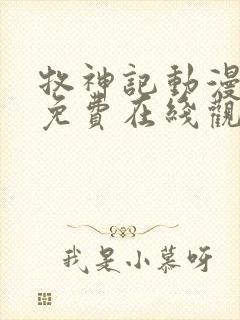 牧神記動漫
免費在綫觀
我是小慕呀